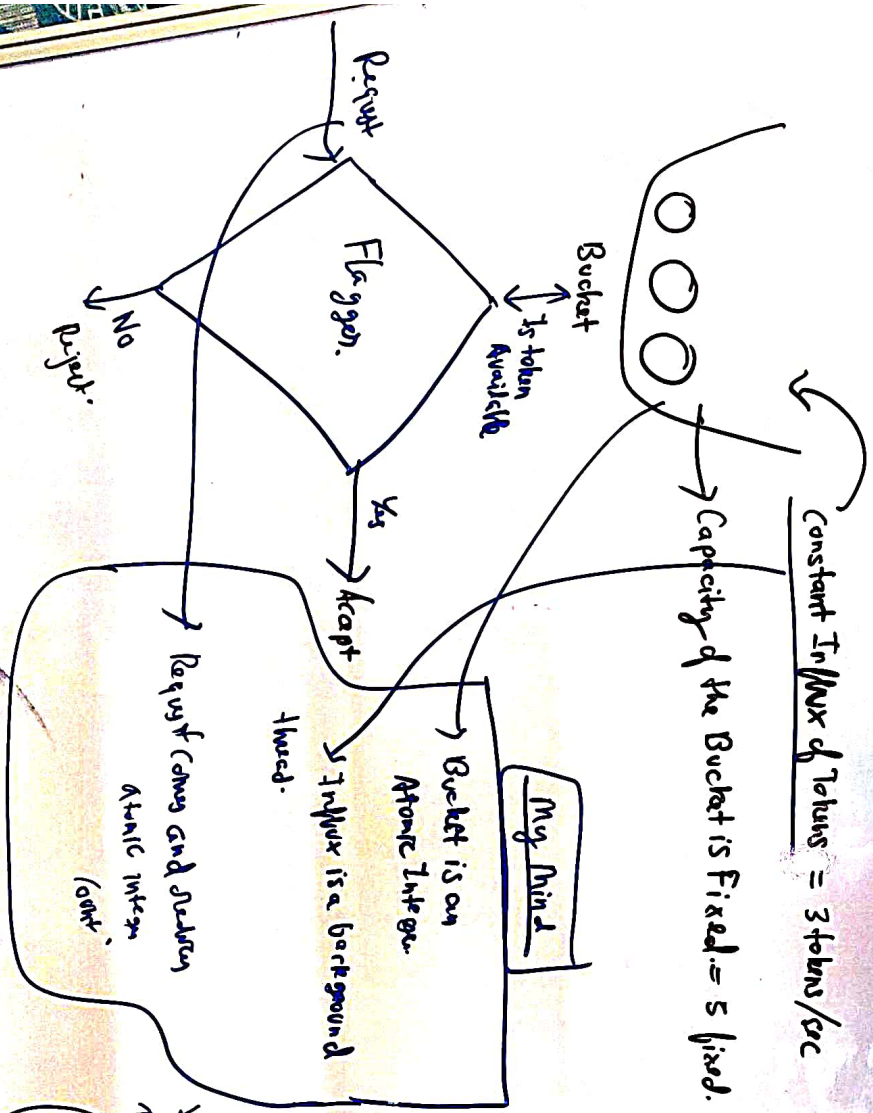 Constant Influx of Tokens = 3 tokens/sec
Capacity of the Bucket is Fixed. = 5 fixed.
Bucket
Is token
Available
Request
Flagger.
Yes
Accept
No
Reject.
My Mind
Bucket is an
Atomic Integer.
Influx is a background
thread.
Request comes and reduces
atomic integer
count.